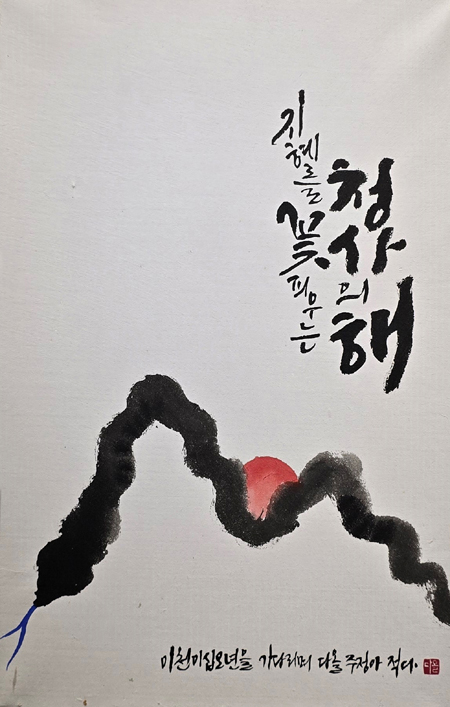 지혜를 꽃 피우는
청사의 해
이천이십오년을 기다리며 다올 주정아 적다.
다올